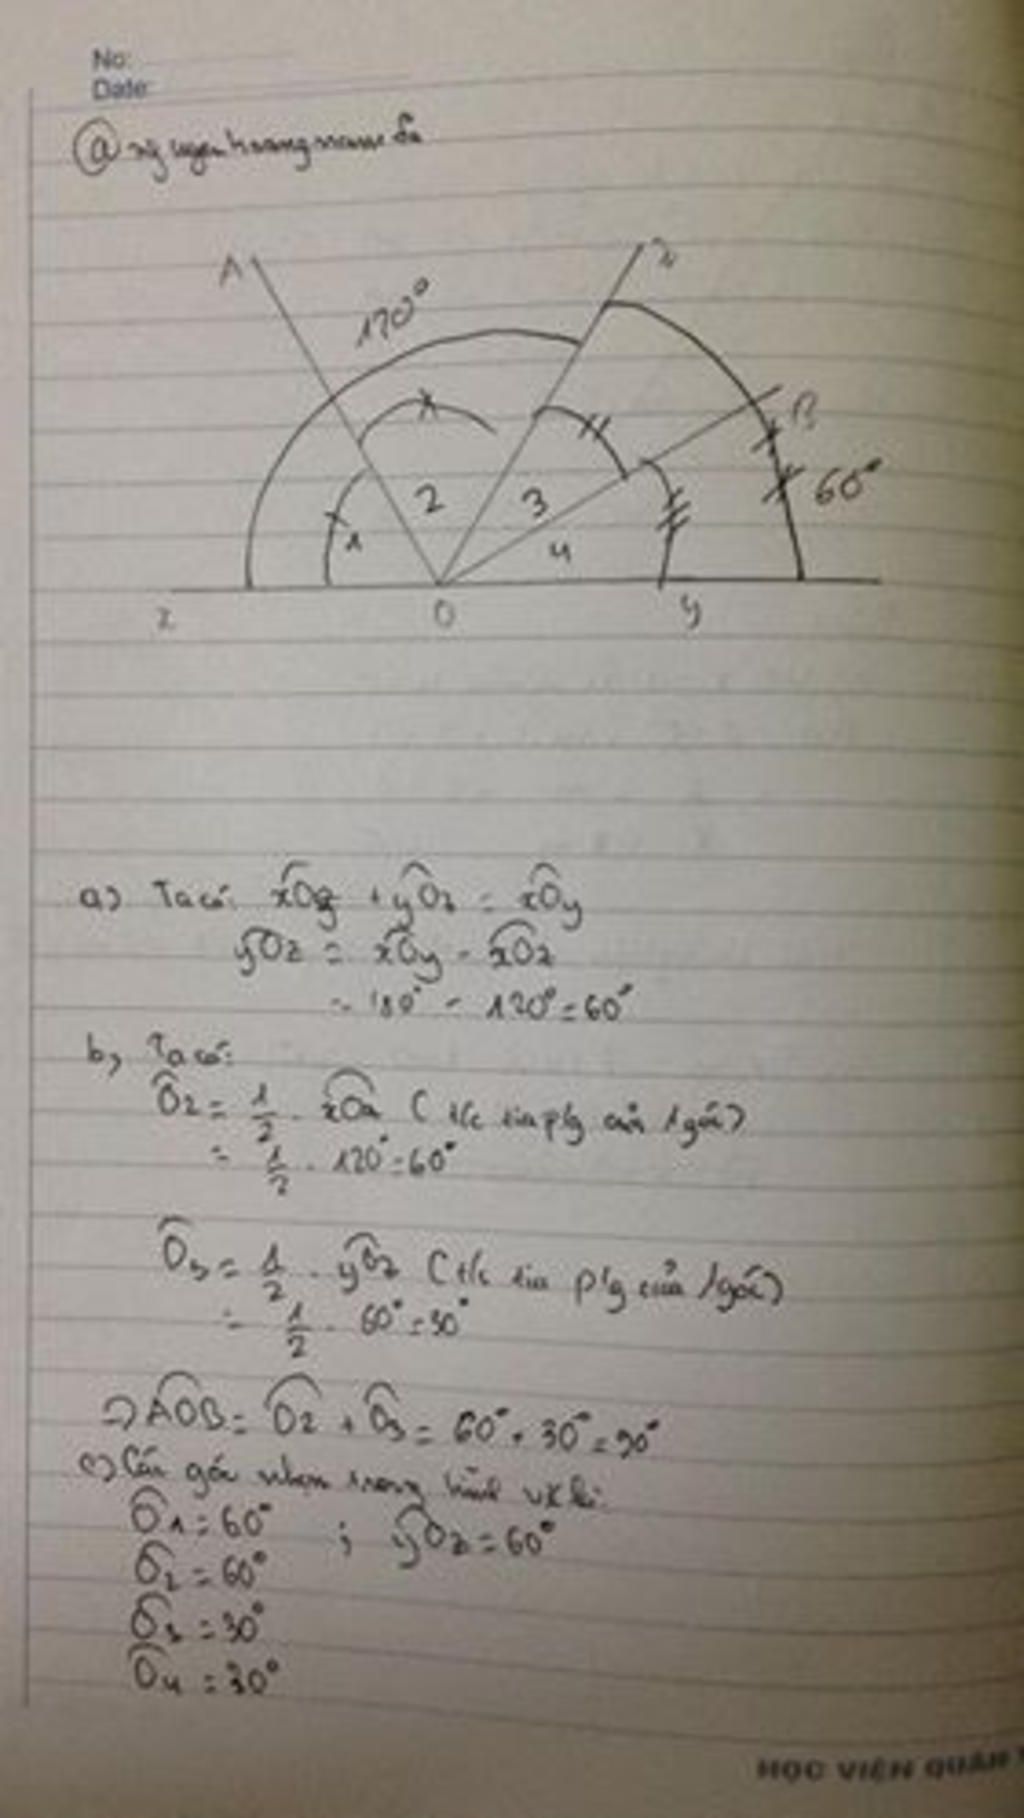 No:
Date:
@
A
120°
z
B
60°
1
2
3
4
x
O
y
a) Ta có: xOz + yOz = xOy
yOz = xOy - xOz
= 180° - 120° = 60°
b, Ta có:
O2 = 1/2 . xOz (t/c tia p/g của 1 góc)
= 1/2 . 120° = 60°
O3 = 1/2 . yOz (t/c tia p/g của 1 góc)
= 1/2 . 60° = 30°
=> AOB = O2 + O3 = 60° + 30° = 90°
c) Các góc nhọn trong hình vẽ là:
O1 = 60° ; yOz = 60°
O2 = 60°
O3 = 30°
O4 = 30°
HỌC VIỆN QUÂN